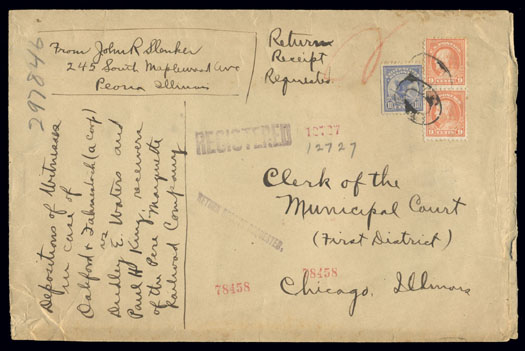 297846.
From John R Slenker
245 South Maplewood Ave
Peoria Illinois
Return
Receipt
Requested
REGISTERED
12727
12727
RETURN RECEIPT REQUESTED.
Clerk of the
Municipal Court
(First District)
Chicago, Illinois
78458
78458
Depositions of Witnesses
in case of
Oakford & Fahnestock (a corp)
vs
Dudley E. Waters and
Paul H King receivers
of the Pere Marquette
Railroad Company